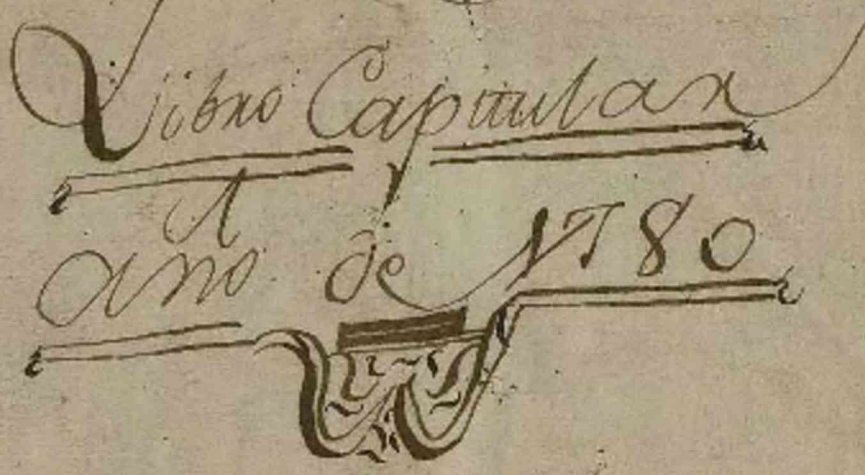 Libro Capitular
año de 1780